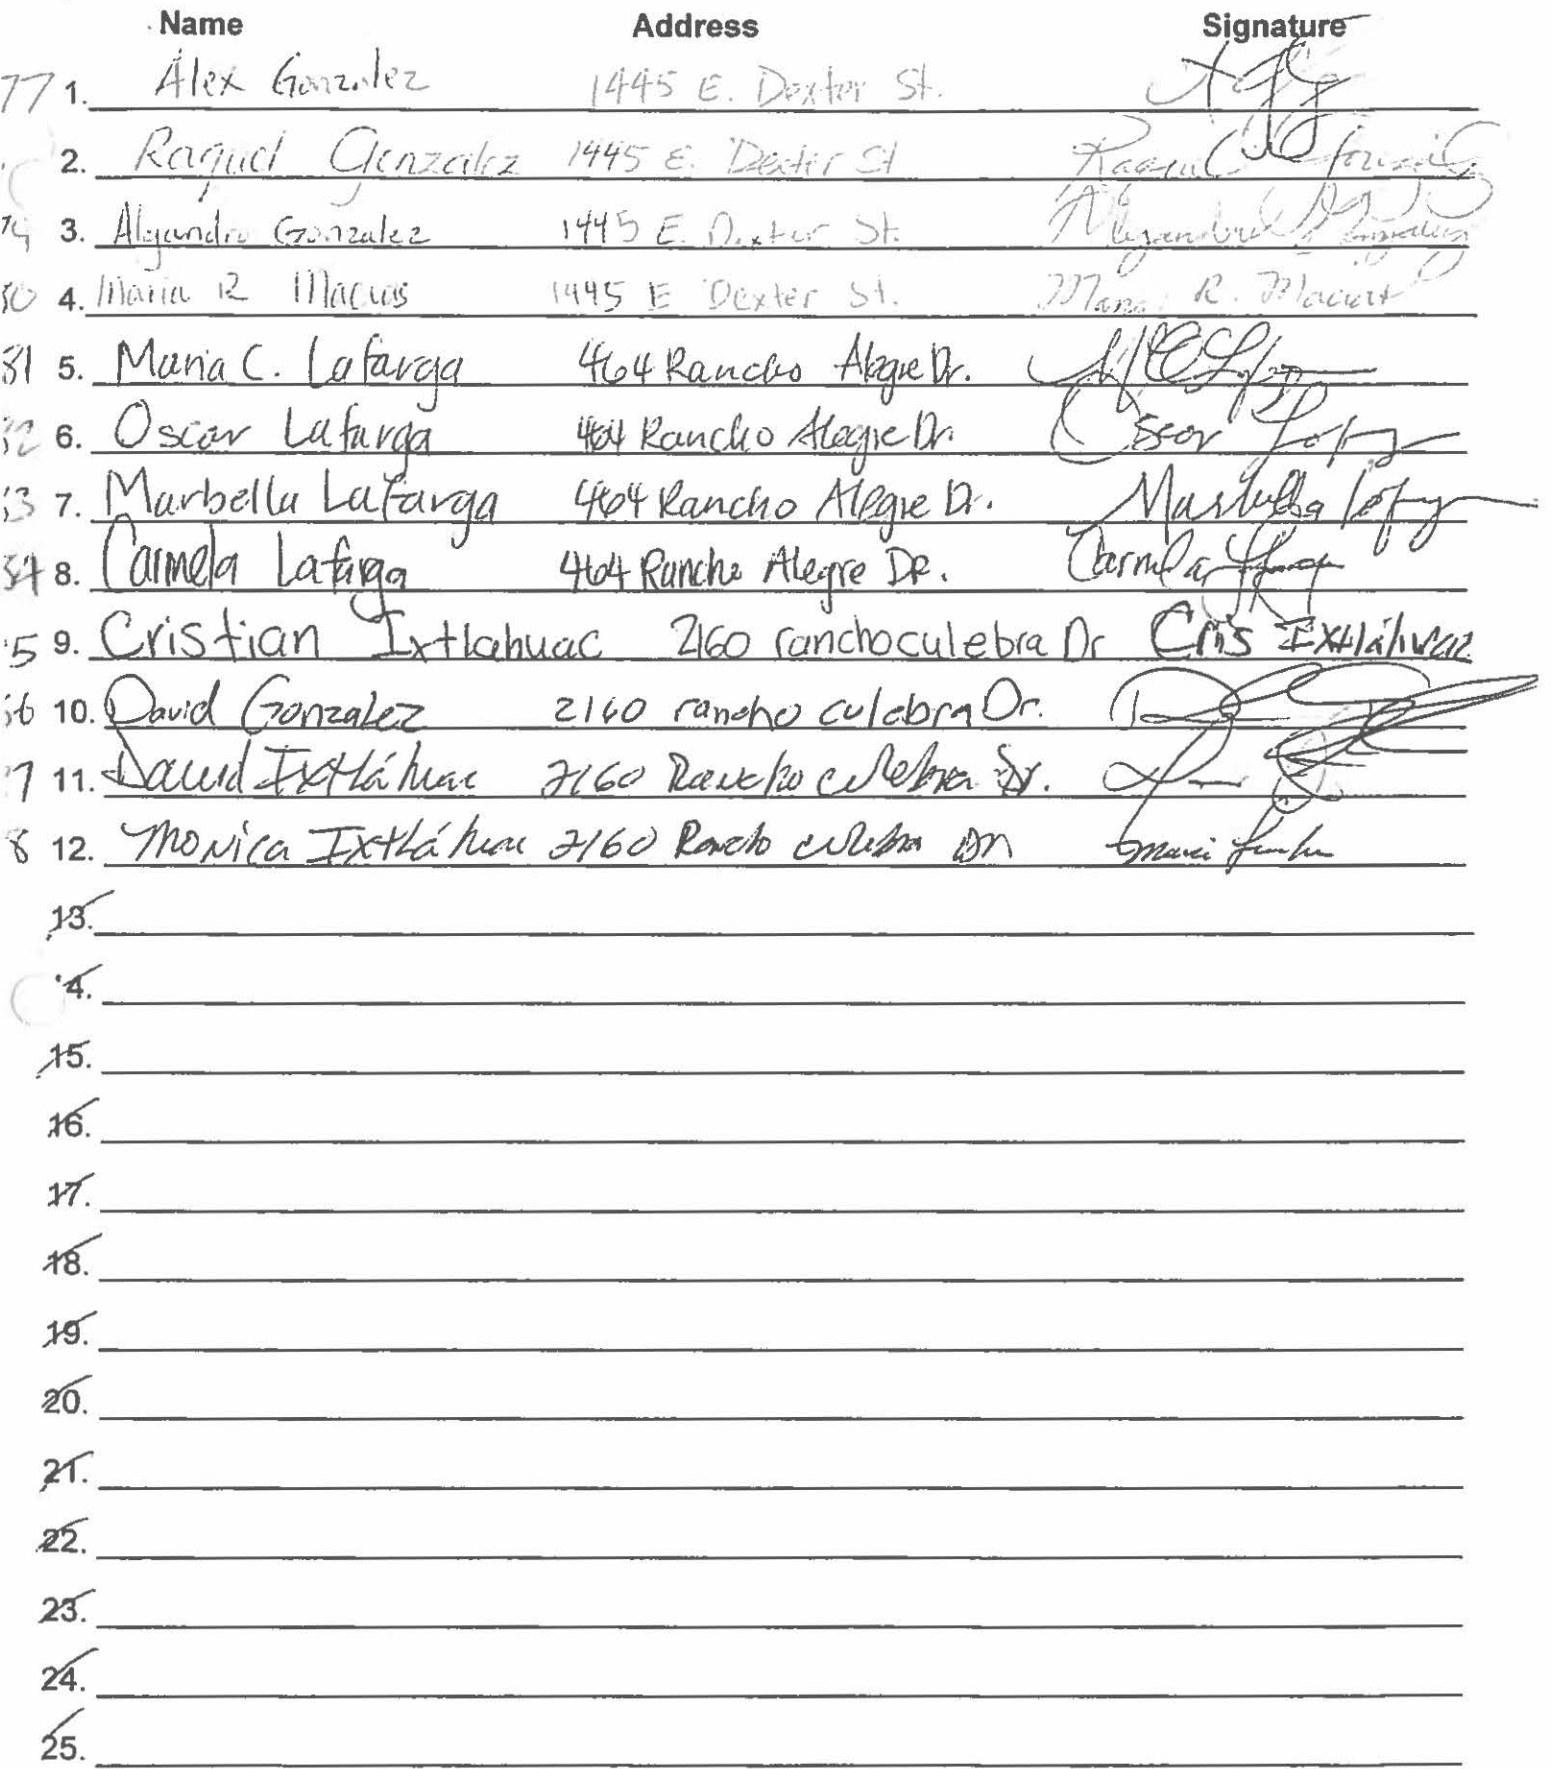 Name Address Signature
77 1. Alex Gonzalez 1445 E. Dexter St.
2. Raquel Gonzalez 1445 E. Dexter St
3. Alejandro Gonzalez 1445 E. Dexter St.
4. Maria R Macias 1445 E Dexter St. R. Macias
81 5. Maria C. Lafarga 464 Rancho Alegre Dr.
6. Oscar Lafarga 464 Rancho Alegre Dr. Oscar
7. Marbella Lafarga 464 Rancho Alegre Dr. Marbella
84 8. Carmela Lafarga 464 Rancho Alegre DR. Carmela
5 9. Cristian Ixtlahuac 2160 rancho culebra Dr Cris Ixtláhuac
10. David Gonzalez 2160 rancho culebra Dr.
7 11. David Ixtláhuac 2160 Rancho culebra Dr.
8 12. Monica Ixtláhuac 2160 Rancho culebra Dr
13.
14.
15.
16.
17.
18.
19.
20.
21.
22.
23.
24.
25.